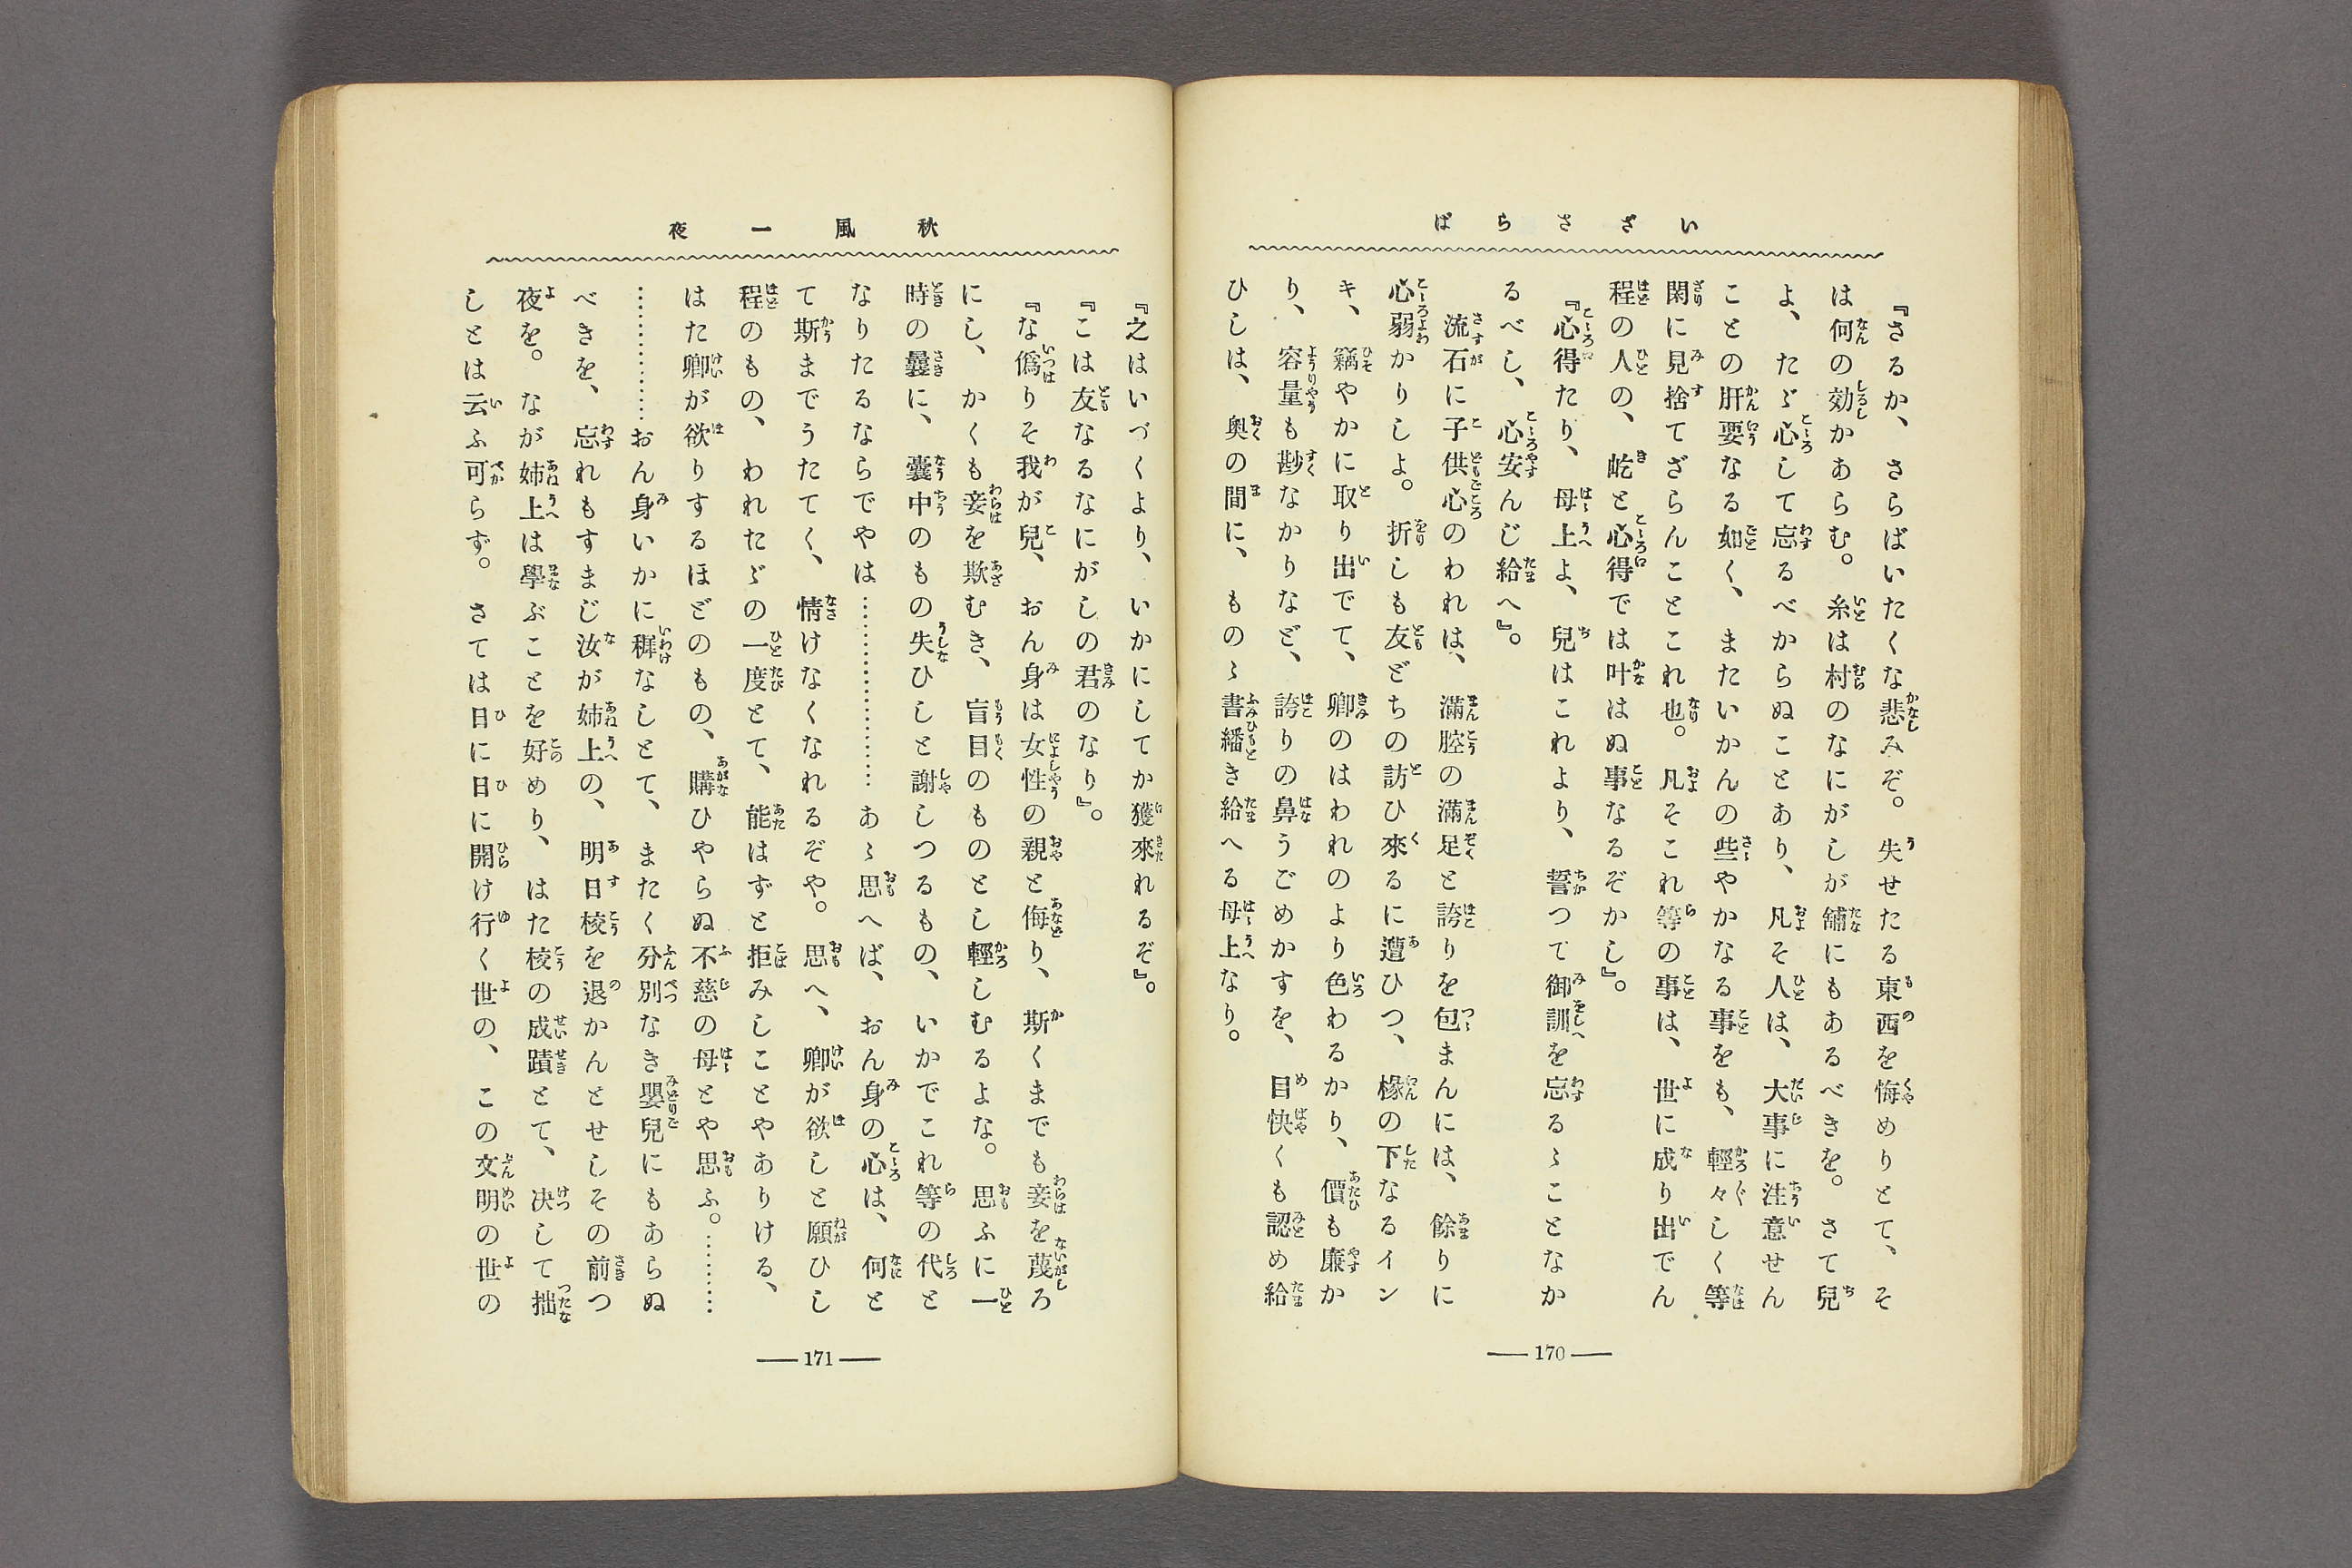 いざさらば
『さるか、さらばいたくな悲みぞ。失せたる東西を悔めりとて、そ
は何の効かあらむ。糸は村のなにがしが舖にもあるべきを。さて兒
よ、たゞ心して忘るべからぬことあり、凡そ人は、大事に注意せん
ことの肝要なる如く、またいかんの些やかなる事をも、輕々しく等
閑に見捨てざらんことこれ也。凡そこれ等の事は、世に成り出でん
程の人の、屹と心得では叶はぬ事なるぞかし』。
『心得たり、母上よ、兒はこれより、誓つて御訓を忘るゝことなか
るべし、心安んじ給へ』。
流石に子供心のわれは、滿腔の滿足と誇りを包まんには、餘りに
心弱かりしよ。折しも友どちの訪ひ來るに遭ひつ、椽の下なるイン
キ、竊やかに取り出でて、卿のはわれのより色わるかり、價も廉か
り、容量も尠なかりなど、誇りの鼻うごめかすを、目快くも認め給
ひしは、奧の間に、ものゝ書繙き給へる母上なり。
― 170 ―
秋風一夜
『之はいづくより、いかにしてか獲來れるぞ』。
『こは友なるなにがしの君のなり』。
『な僞りそ我が兒、おん身は女性の親と侮り、斯くまでも妾を蔑ろ
にし、かくも妾を欺むき、盲目のものとし輕しむるよな。思ふに一
時の曩に、囊中のもの失ひしと謝しつるもの、いかでこれ等の代と
なりたるならでやは……………………あゝ思へば、おん身の心は、何と
て斯までうたてく、情けなくなれるぞや。思へ、卿が欲しと願ひし
程のもの、われたゞの一度とて、能はずと拒みしことやありける、
はた卿が欲りするほどのもの、購ひやらぬ不慈の母とや思ふ。………
……………おん身いかに穉なしとて、またく分別なき嬰兒にもあらぬ
べきを、忘れもすまじ汝が姉上の、明日棱を退かんとせしその前つ
夜を。なが姉上は學ぶことを好めり、はた棱の成蹟とて、决して拙
しとは云ふ可らず。さては日に日に開け行く世の、この文明の世の
― 171 ―